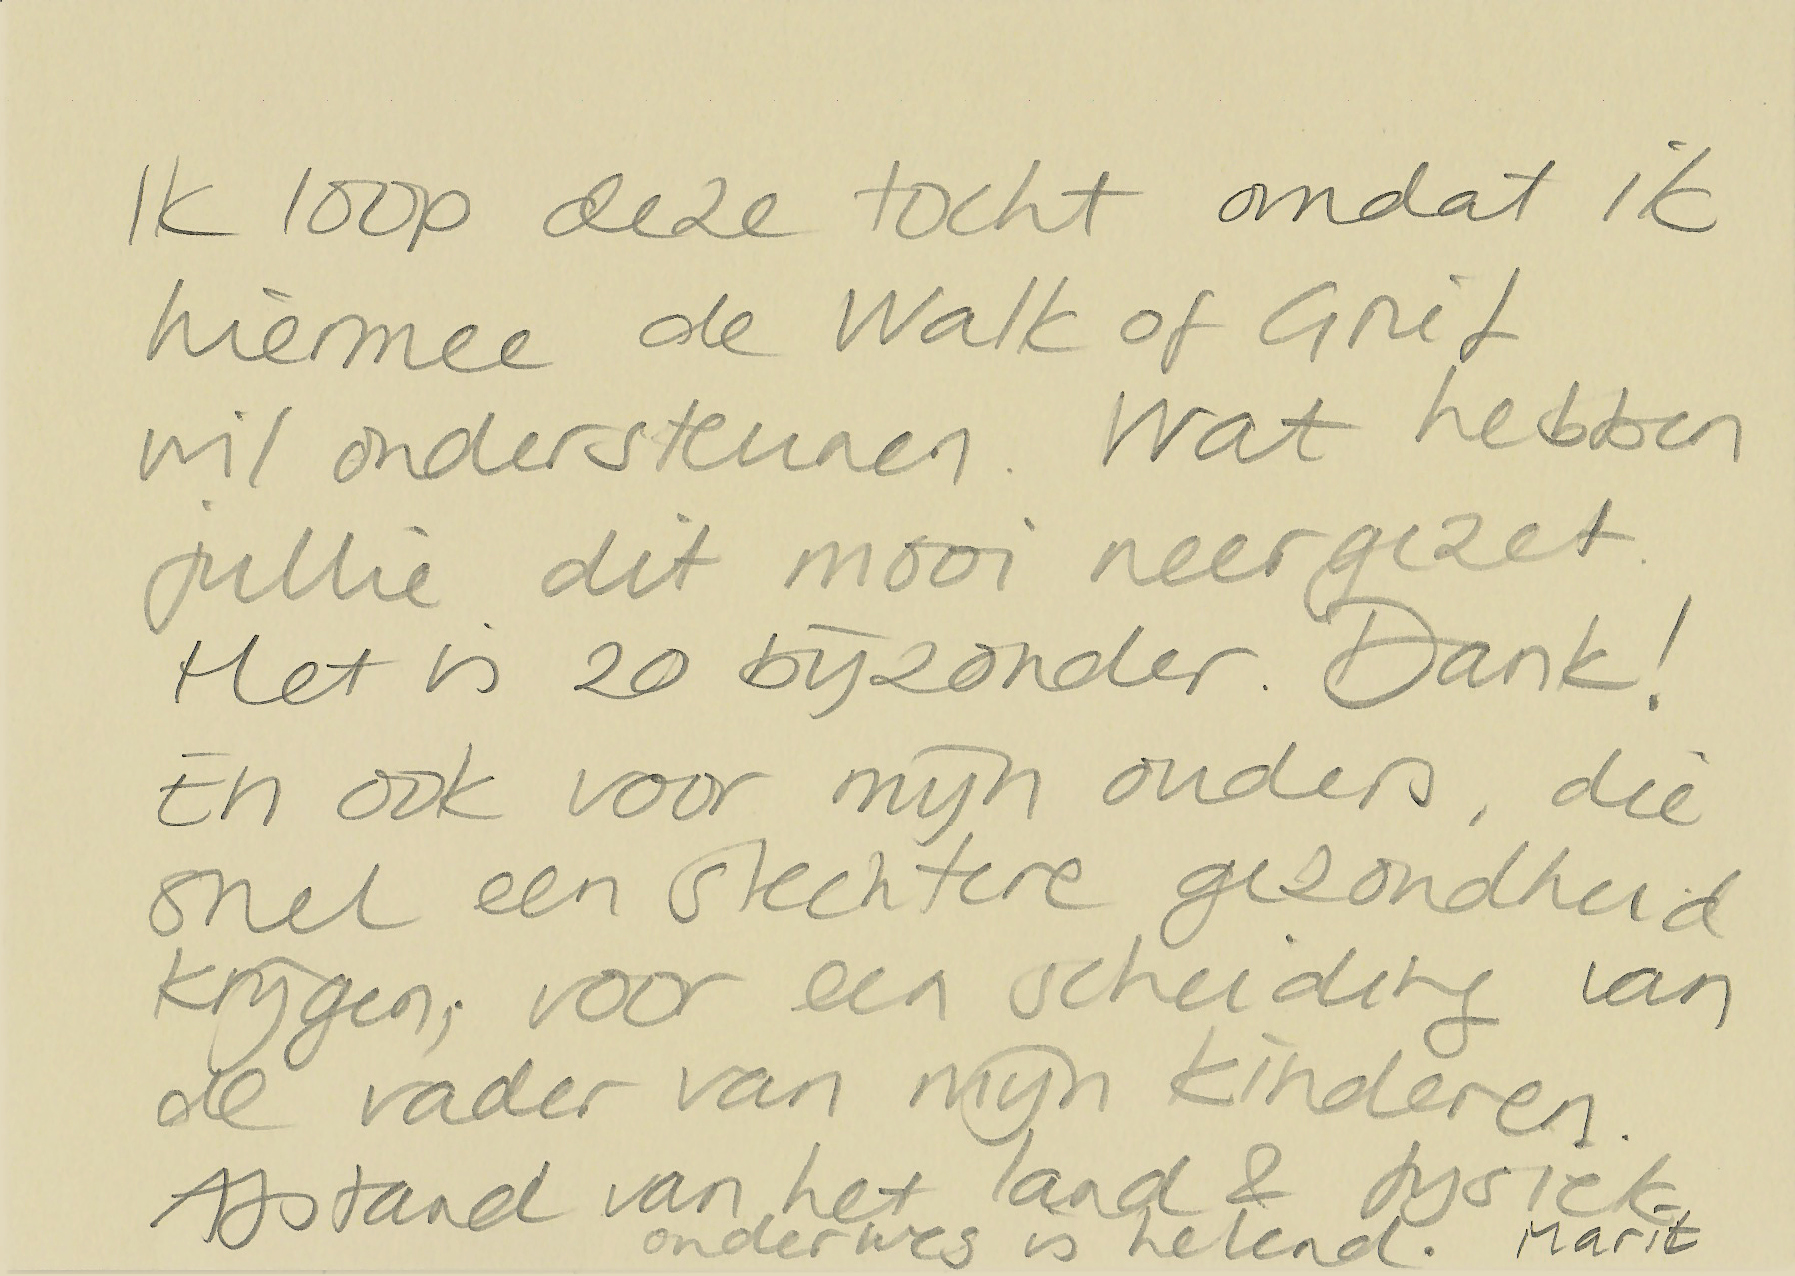 Ik loop deze tocht omdat ik
hiermee de Walk of Grief
wil ondersteunen. Wat hebben
jullie dit mooi neergezet.
Het is zo bijzonder. Dank!
En ook voor mijn ouders, die
snel een slechtere gezondheid
krijgen; voor een scheiding van
de vader van mijn kinderen.
Afstand van het land & fysiek
onderweg is helend. Marit